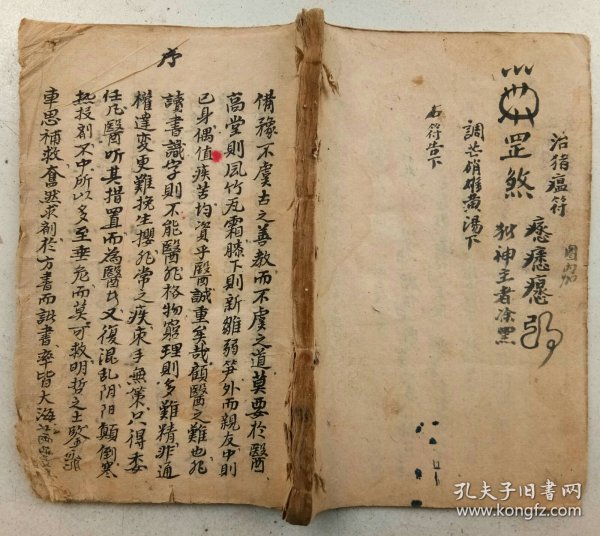 治猪瘟符
罡煞
狱神主者凃黑
調芒硝雄黄湯下
右符告下
序
備豫不虞古之善教而不虞之道莫要於醫
高堂則風竹瓦霜膝下則新雛弱笋外而親友中則
已身偶值疾苦均資乎醫誠重矣哉顧醫之難也非
讀書識字則不能醫非格物窮理則多難精非通
權達變更難挽生攖非常之疾束手無策只得委
任凡醫听其措置而為醫者又復混乱阴阳顛倒寒
热投剂不中所以多至垂危而莫可救明哲之士鉴
車思補救奮然求剂於方書而諸書率皆大海
孔夫子旧书网
www.kongfz.com